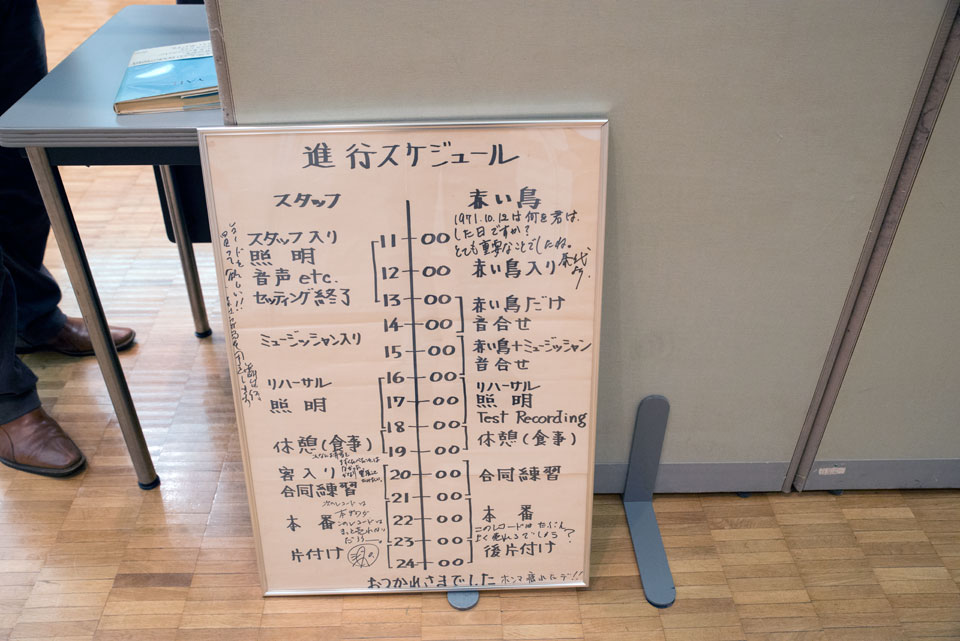 進行スケジュール
スタッフ
赤い鳥
1971.10.12は何を君は
した日ですか?
とても重要なことでしたね。
スタッフ入り
11—00
照明
12—00
赤い鳥入り
音声etc.
セッティング終了
13—00
赤い鳥だけ
14—00
音合せ
ミュージッシャン入り
15—00
赤い鳥+ミュージッシャン
音合せ
16—00
リハーサル
リハーサル
照明
17—00
照明
18—00
Test Recording
休憩(食事)
19—00
休憩(食事)
客入り
20—00
合同練習
合同練習
21—00
本番
22—00
本番
このレコードは
このレコードは
よく売れるでしょう?
23—00
片付け
後片付け
24—00
おつかれさまでした ホンマ疲れたデ!!